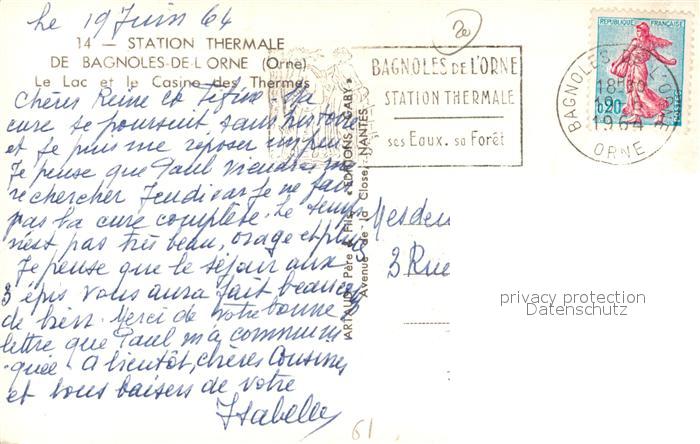 le 19 Juin 64
14 — STATION THERMALE
DE BAGNOLES-DE-L'ORNE (Orne)
Le Lac et le Casino des Thermes
Chères Reine et Ma
cure se poursuit sans histoire
et je puis me reposer un peu
Je pense que Paul viendra me
rechercher Jeudi car je ne fais
pas la cure complète. Le temps
n'est pas très beau, orage et pluie
Je pense que le séjour aux
3 épis vous aura fait beaucoup
de bien. Merci de votre bonne
lettre que Paul m'a communi
quée. A bientôt, chères Cousines
et bons baisers de votre
Isabelle
ARTAUD Père & Fils "EDITIONS GABY"
Avenue de la Close, NANTES
BAGNOLES DE L'ORNE
STATION THERMALE
ses Eaux. sa Forêt
REPUBLIQUE FRANÇAISE
0,20
POSTES
BAGNOLES DE L'ORNE
18H
19-6
1964
ORNE
Mesdem
3 Rue
privacy protection
Datenschutz
61